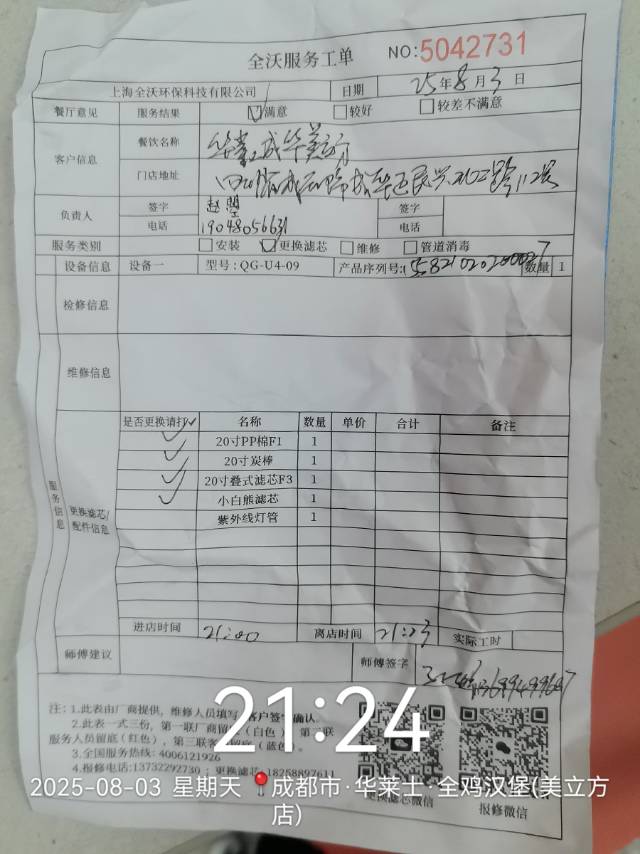 全沃服务工单 NO:5042731
上海全沃环保科技有限公司 日期 25年8月3日
餐厅意见 服务结果 ☑满意 □较好 □较差不满意
客户信息 餐饮名称
门店地址
负责人 签字 赵 签字
电话 19048056631 电话
服务类别 □安装 ☑更换滤芯 □维修 □管道消毒
设备信息 设备一 型号:QG-U4-09 产品序列号: 数量 1
检修信息
维修信息
服务信息
更换滤芯/配件信息
是否更换请打✓ 名称 数量 单价 合计 备注
✓ 20寸PP棉F1 1
✓ 20寸炭棒 1
✓ 20寸叠式滤芯F3 1
✓ 小白熊滤芯 1
紫外线灯管 1
进店时间 21:00 离店时间 21:23 实际工时
师傅建议 师傅签字
注:1.此表由厂商提供,维修人员填写,客户签字确认.
2.此表一式三份,第一联厂商留(白色),第二联
服务人员留底(红色),第三联客留底(蓝色).
3.全国服务热线:4006121926
4.报修电话:13732292730;更换滤芯:18258897611
更换滤芯微信 报修微信
21:24
2025-08-03 星期天 成都市·华莱士·全鸡汉堡(美立方
店)